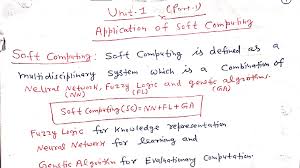 Unit-1 (Part-1)
Application of Soft Computing
Soft Computing: Soft Computing is defined as a
multidisciplinary system which is a Combination of
Neural Network, Fuzzy Logic and genetic algorithms.
(NN) (FL) (GA)
Soft Computing(SC)=NN+FL+GA
Fuzzy Logic for Knowledge representation
Neural Network for learning and
Genetic Algorithm for Evolutionary Computation.